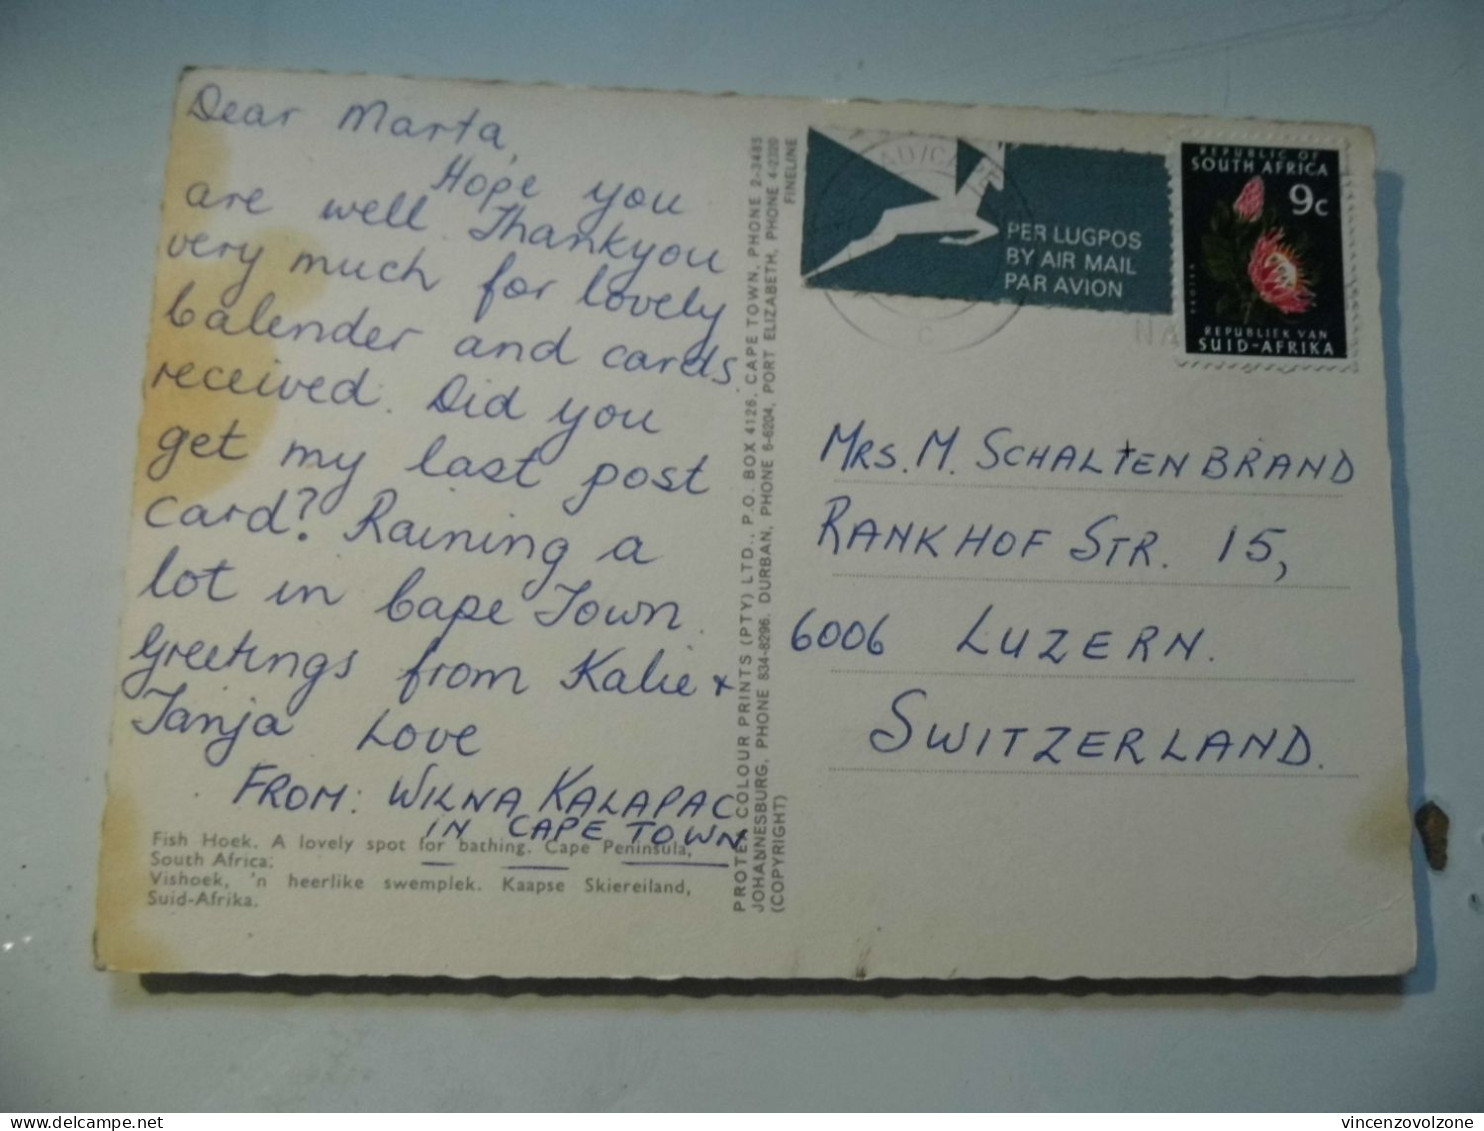 Dear Marta,
Hope you
are well Thankyou
very much for lovely
Calender and cards
received. Did you
get my last post
card? Raining a
lot in Cape Town.
Greetings from Kalie +
Tanja Love
FROM: WILNA KALAPAC
IN CAPE TOWN
Fish Hoek. A lovely spot for bathing. Cape Peninsula,
South Africa.
Vishoek, 'n heerlike swemplek. Kaapse Skiereiland,
Suid-Afrika.
PROTEA COLOUR PRINTS (PTY) LTD., P.O. BOX 4126, CAPE TOWN, PHONE 2-3483
JOHANNESBURG, PHONE 834-8296. DURBAN, PHONE 6-6204, PORT ELIZABETH, PHONE 4-2320
(COPYRIGHT)
FINELINE
PER LUGPOS
BY AIR MAIL
PAR AVION
REPUBLIC OF
SOUTH AFRICA
9c
PROTEA
REPUBLIEK VAN
SUID-AFRIKA
MRS. M. SCHALTENBRAND
RANKHOF STR. 15,
6006 LUZERN.
SWITZERLAND.
vincenzovolzone